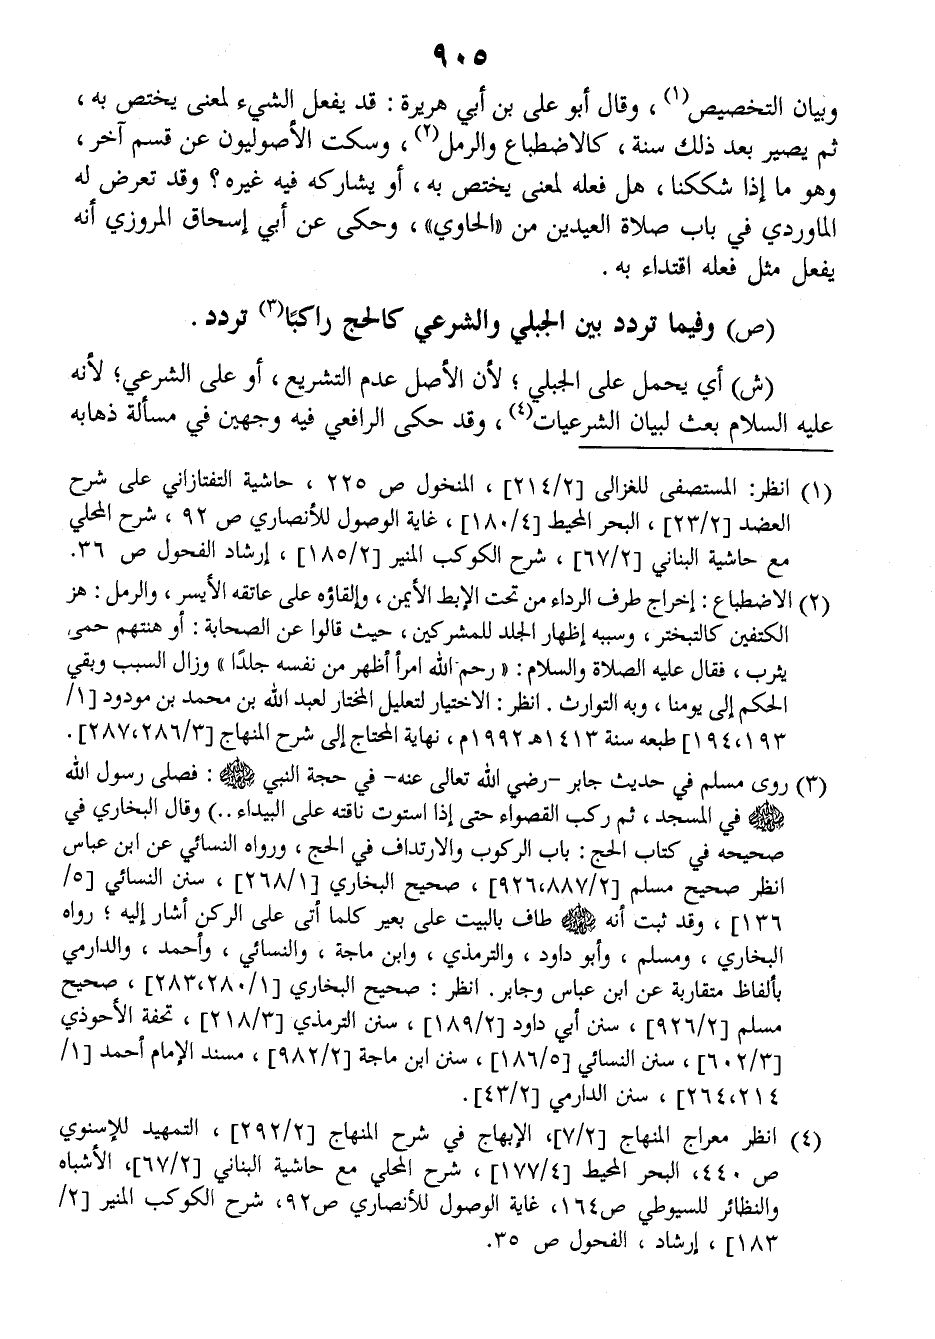 ٩٠٥
وبيان التخصيص(١) ، وقال أبو على بن أبي هريرة : قد يفعل الشيء لمعنى يختص به ،
ثم يصير بعد ذلك سنة ، كالاضطباع والرمل(٢) ، وسكت الأصوليون عن قسم آخر ،
وهو ما إذا شككنا ، هل فعله لمعنى يختص به ، أو يشاركه فيه غيره ؟ وقد تعرض له
الماوردي في باب صلاة العيدين من «الحاوي» ، وحكى عن أبي إسحاق المروزي أنه
يفعل مثل فعله اقتداء به .
(ص) وفيما تردد بين الجبلي والشرعي كالحج راكبًا(٣) تردد .
(ش) أي يحمل على الجبلي ؛ لأن الأصل عدم التشريع ، أو على الشرعي؛ لأنه
عليه السلام بعث لبيان الشرعيات(٤) ، وقد حكى الرافعي فيه وجهين في مسألة ذهابه
(١) انظر: المستصفى للغزالى [٢١٤/٢] ، المنخول ص ٢٢٥ ، حاشية التفتازاني على شرح
العضد [٢٣/٢] ، البحر المحيط [١٨٠/٤] ، غاية الوصول للأنصاري ص ٩٢ ، شرح المحلي
مع حاشية البناني [٦٧/٢] ، شرح الكوكب المنير [١٨٥/٢] ، إرشاد الفحول ص ٣٦.
(٢) الاضطباع : إخراج طرف الرداء من تحت الإبط الأيمن ، وإلقاؤه على عاتقه الأيسر ، والرمل : هز
الكتفين كالتبختر ، وسببه إظهار الجلد للمشركين ، حيث قالوا عن الصحابة : أو هنتهم حمى
يثرب ، فقال عليه الصلاة والسلام : « رحم الله امرأ أظهر من نفسه جلدًا » وزال السبب وبقي
الحكم إلى يومنا ، وبه التوارث . انظر : الاختيار لتعليل المختار لعبد الله بن محمد بن مودود [١/
١٩٤،١٩٣] طبعه سنة ١٤١٣هـ ١٩٩٢م ، نهاية المحتاج إلى شرح المنهاج [٢٨٧،٢٨٦/٣] .
(٣) روى مسلم في حديث جابر -رضي الله تعالى عنه- في حجة النبي ﷺ : فصلى رسول الله
ﷺ في المسجد ، ثم ركب القصواء حتى إذا استوت ناقته على البيداء ..) وقال البخاري في
صحيحه في كتاب الحج : باب الركوب والارتداف في الحج ، ورواه النسائي عن ابن عباس
انظر صحيح مسلم [٩٢٦،٨٨٧/٢] ، صحيح البخاري [٢٦٨/١] ، سنن النسائي [٥/
١٣٦] ، وقد ثبت أنه ﷺ طاف بالبيت على بعير كلما أتى على الركن أشار إليه ؛ رواه
البخاري ، ومسلم ، وأبو داود ، والترمذي ، وابن ماجة ، والنسائي ، وأحمد ، والدارمي
بألفاظ متقاربة عن ابن عباس وجابر . انظر : صحيح البخاري [٢٨٣،٢٨٠/١] ، صحيح
مسلم [٩٢٦/٢] ، سنن أبي داود [١٨٩/٢] ، سنن الترمذي [٢١٨/٣] ، تحفة الأحوذي
[٦٠٢/٣] ، سنن النسائي [١٨٦/٥] ، سنن ابن ماجة [٩٨٢/٢] ، مسند الإمام أحمد [١/
٢٦٤،٢١٤] ، سنن الدارمي [٤٣/٢] .
(٤) انظر معراج المنهاج [٧/٢]، الإبهاج في شرح المنهاج [٢٩٢/٢] ، التمهيد للإسنوي
ص ٤٤٠، البحر المحيط [١٧٧/٤] ، شرح المحلي مع حاشية البناني [٦٧/٢]، الأشباه
والنظائر للسيوطي ص١٦٤، غاية الوصول للأنصاري ص٩٢، شرح الكوكب المنير [٢/
١٨٣] ، إرشاد ، الفحول ص ٣٥.